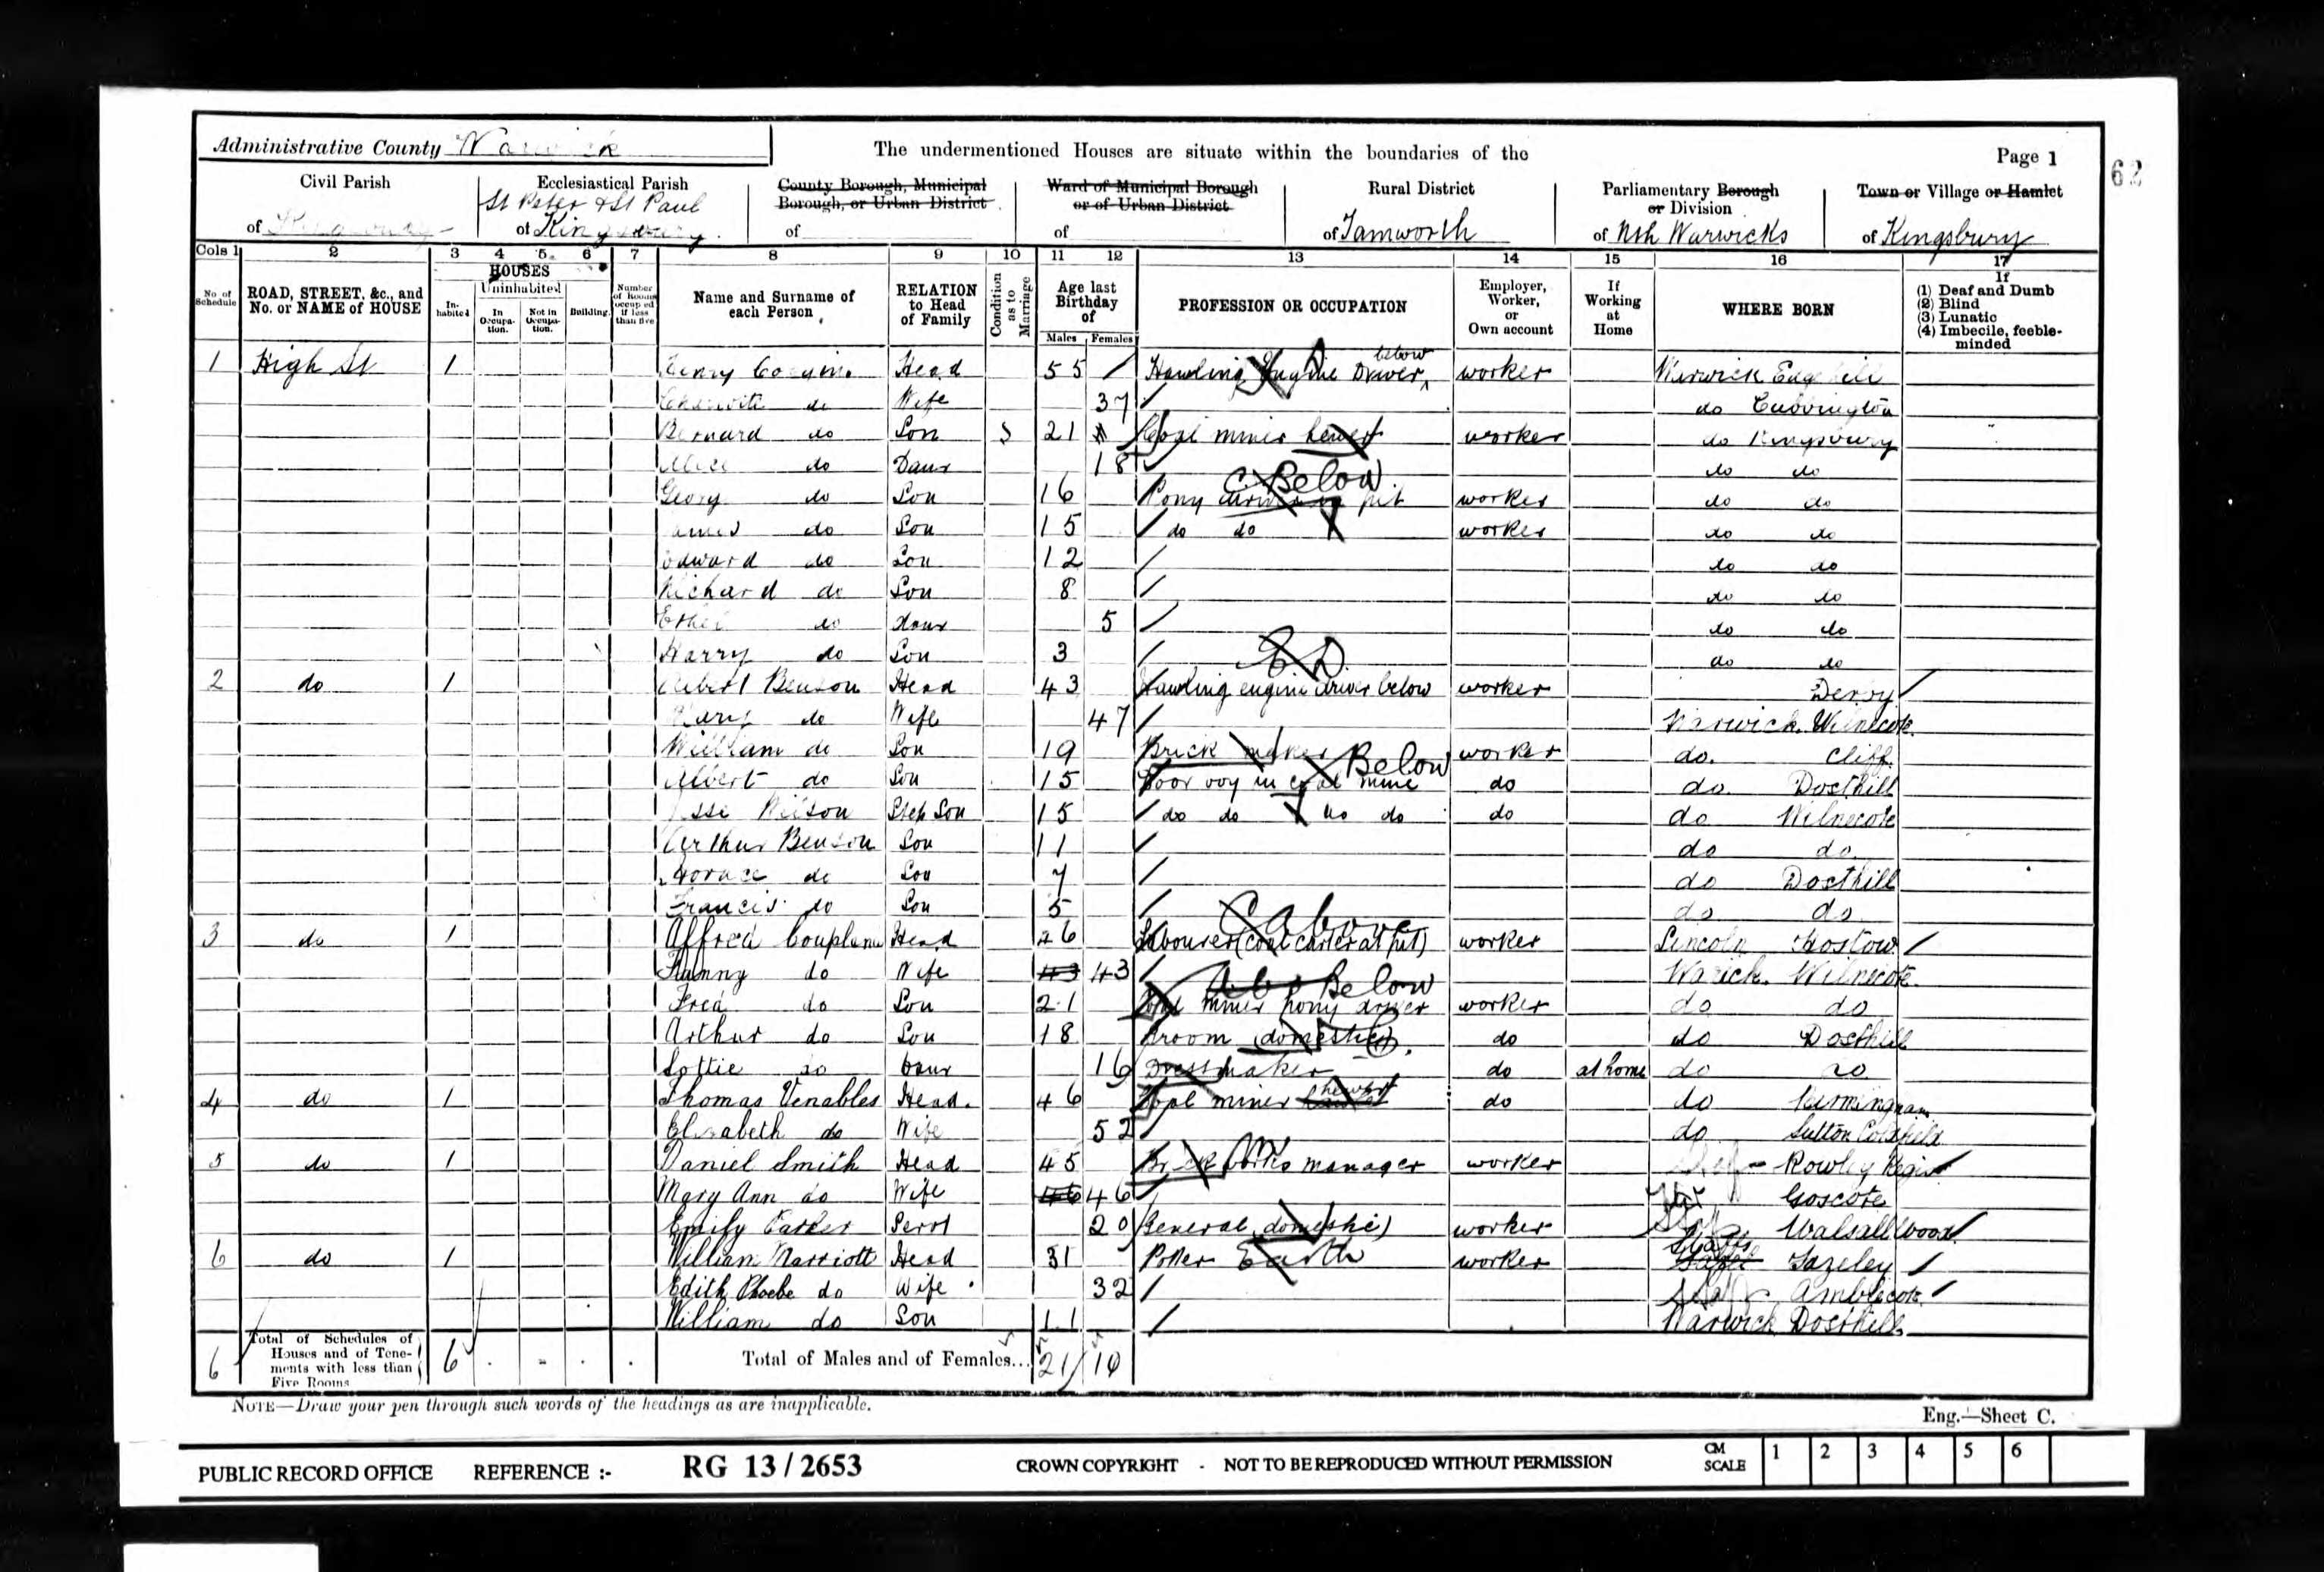 Administrative County Warwick
The undermentioned Houses are situate within the boundaries of the
Page 1
62
Civil Parish
of
Ecclesiastical Parish
St Peter & St Paul
of Kingsbury
County Borough, Municipal
Borough, or Urban District
of
Ward of Municipal Borough
or of Urban District
of
Rural District
of Tamworth
Parliamentary Borough
or Division
of Nth Warwicks
Town or Village or Hamlet
of Kingsbury
Cols 1 2 3 4 5 6 7 8 9 10 11 12 13 14 15 16 17
No of Schedule
ROAD, STREET, &c., and No. or NAME of HOUSE
HOUSES
Inhabited
Uninhabited
In Occupation.
Not in Occupation.
Building.
Number of Rooms occupied if less than five
Name and Surname of each Person
RELATION to Head of Family
Condition as to Marriage
Age last Birthday of
Males Females
PROFESSION OR OCCUPATION
Employer, Worker, or Own account
If Working at Home
WHERE BORN
If
(1) Deaf and Dumb
(2) Blind
(3) Lunatic
(4) Imbecile, feeble-minded
1 High St 1 Henry Head 55 Hawling Engine Driver below worker Warwick Edge hill
do Wife 37 do Cubbington
Bernard do Son S 21 Coal miner hewer worker do Kingsbury
Alice do Daur 18 do do
C Below
Georg do Son 16 Pony driver in pit worker do do
James do Son 15 do do worker do do
Edward do Son 12 do do
Richard do Son 8 do do
Ethel do daur 5 do do
Harry do Son 3 do do
E D
2 do 1 Albert Benson Head 43 Hawling engine driver below worker Derby
Mary do Wife 47 Warwick Wilnecote
William do Son 19 Brick maker worker do. Cliff
Below
Albert do Son 15 Door boy in coal mine do do Dosthill
Jesse Wilson Step Son 15 do do do do do do Wilnecote
Arthur Benson Son 11 do do
Horace do Son 7 do Dosthill
Francis do Son 5 do do
C above
3 do 1 Alfred Head 46 Labourer (coal carter at pit) worker Lincoln
Fanny do Wife 43 43 Warick. Wilnecote
Below
Fred do Son 21 Coal miner pony driver worker do do
Arthur do Son 18 Groom (domestic) do do Dosthill
Lottie do Daur 16 Dressmaker do at home do do
4 do 1 Thomas Venables Head. 46 Coal miner hewer do do Birmingham
Elizabeth do Wife 52 do Sutton Coldfield
5 do 1 Daniel Smith Head 45 Brick works manager worker Rowley Regis
Mary Ann do Wife 46 46 Goscote
Emily Servt 20 General (domestic) worker Walsall Wood
6 do 1 William Marriott Head 31 Potter Earth worker Staffs Fazeley
Edith Phoebe do Wife 32 Amblecote
William do Son 11 Warwick Dosthill
6 Total of Schedules of Houses and of Tenements with less than Five Rooms 6 Total of Males and of Females... 21 10
NOTE—Draw your pen through such words of the headings as are inapplicable.
Eng.—Sheet C.
PUBLIC RECORD OFFICE REFERENCE :- RG 13/2653 CROWN COPYRIGHT - NOT TO BE REPRODUCED WITHOUT PERMISSION CM SCALE 1 2 3 4 5 6